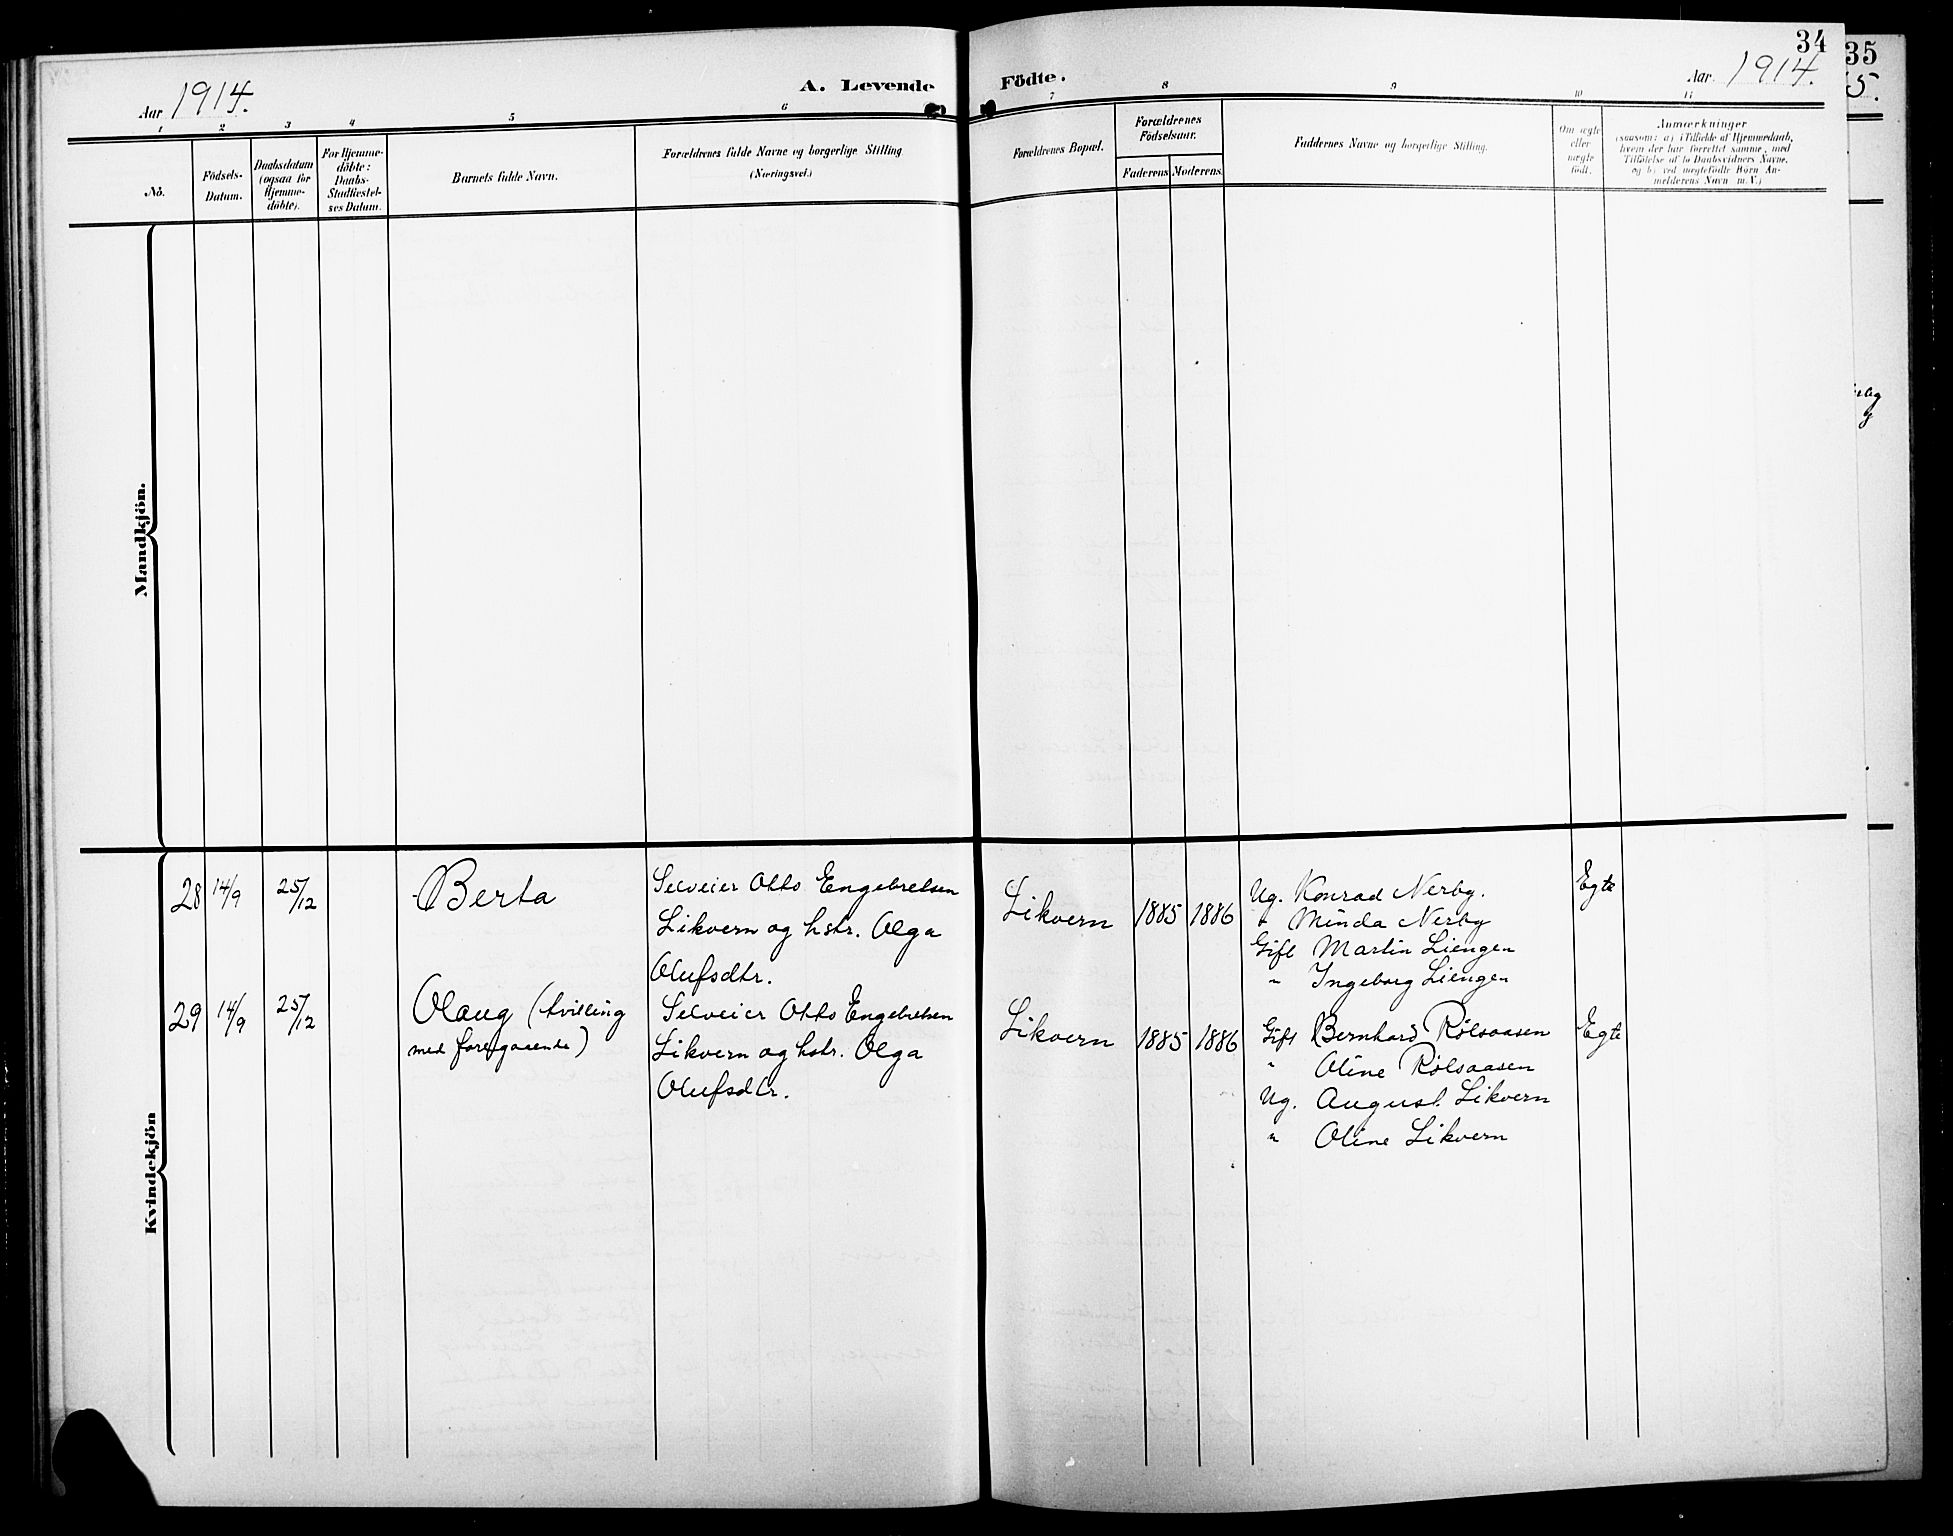 34
35
Aar 1914.
A. Levende
Födte.
Aar 1914.
5.
1 2 3 4 5 6 7 8 9 10 11
No.
Födsels-
Datum.
Daabsdatum
(ogsaa for
Hjemme-
döbte).
For Hjemme-
döbte:
Daabs-
Stadfæstel-
ses Datum.
Barnets fulde Navn.
Forældrenes fulde Navne og borgerlige Stilling
(Næringsvei.)
Forældrenes Bopæl.
Forældrenes
Födselsaar.
Faderens
Moderens.
Faddernes Navne og borgerlige Stilling.
Om ægte
eller
uægte
födt.
Anmærkninger
(saasom: a) i Tilfælde af Hjemmedaab,
hvem der har forrettet samme, med
Tilföielse af to Daabsvidners Navne,
og b) ved uægtefödte Börn An-
melderens Navn m. V.)
Mandkjön.
Kvindekjön
28
14/9
25/12
Berta
Selveier Otto Engebretsen
Likvern og hstr. Olga
Olufsdtr.
Likvern
1885
1886
Ug. Konrad Nerby.
" Minda Nerby
Gift Martin Liengen
" Ingeborg Liengen
Egte
29
14/9
25/12
Olaug (tvilling
med foregaaende)
Selveier Otto Engebretsen
Likvern og hstr. Olga
Olufsdtr.
Likvern
1885
1886
Gift Bernhard Rölsaasen
" Oline Rölsaasen
Ug. August Likvern
" Oline Likvern
Egte